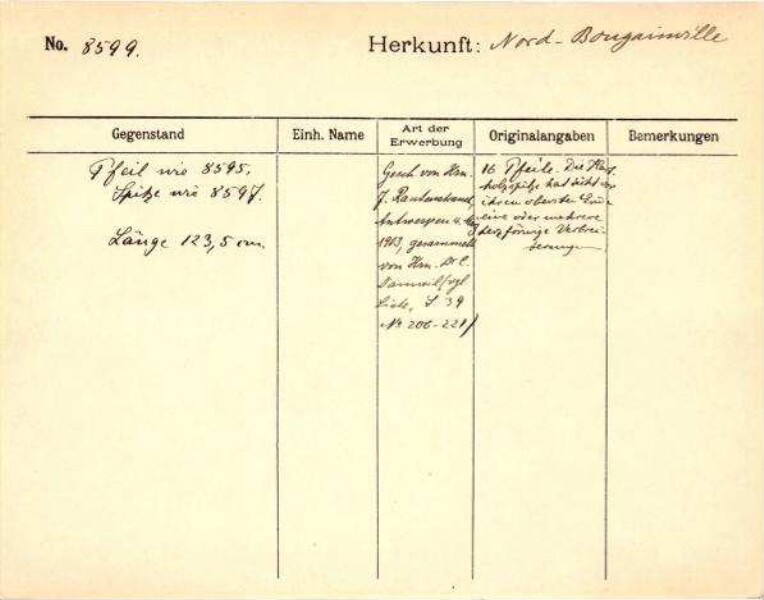 No. 8599.
Herkunft: Nord-Bougainville
Gegenstand
Einh. Name
Art der
Erwerbung
Originalangaben
Bemerkungen
Pfeil wie 8595.
Spitze wie 8597.
Länge 123,5 cm.
Gesch von Hrn.
J. Rautenstrauch,
Antwerpen
1913, gesammelt
von Hrn. Dr C.
vgl
Liste, S 39
No 206-221)
16 Pfeile. Die
holzspitze hat dicht
ihren obersten Ende
eine oder mehrere
herzförmige Verbrei-
terungen